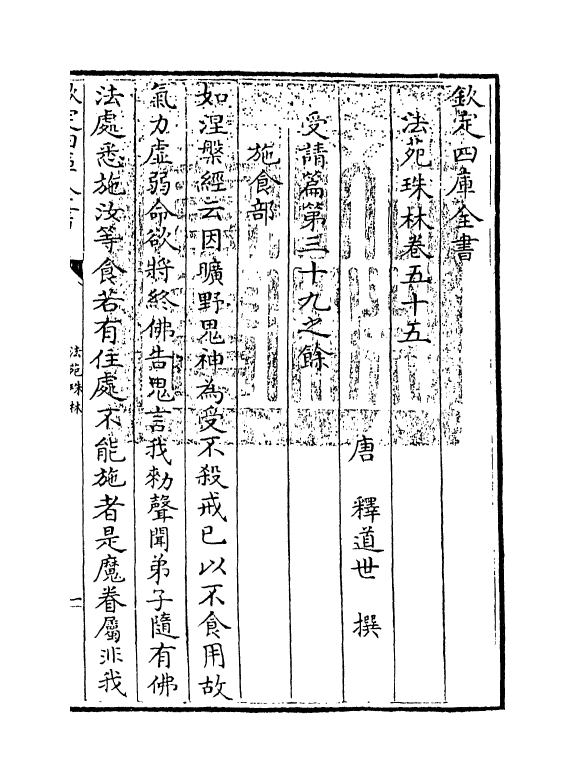 欽定四庫全書
法苑珠林卷五十五
唐 釋道世 撰
受請篇第三十九之餘
施食部
如涅槃經云因曠野鬼神為受不殺戒已以不食用故
氣力虛弱命欲將終佛告鬼言我勑聲聞弟子隨有佛
法處悉施汝等食若有住處不能施者是魔眷屬非我
欽定四庫全書
法苑珠林
一